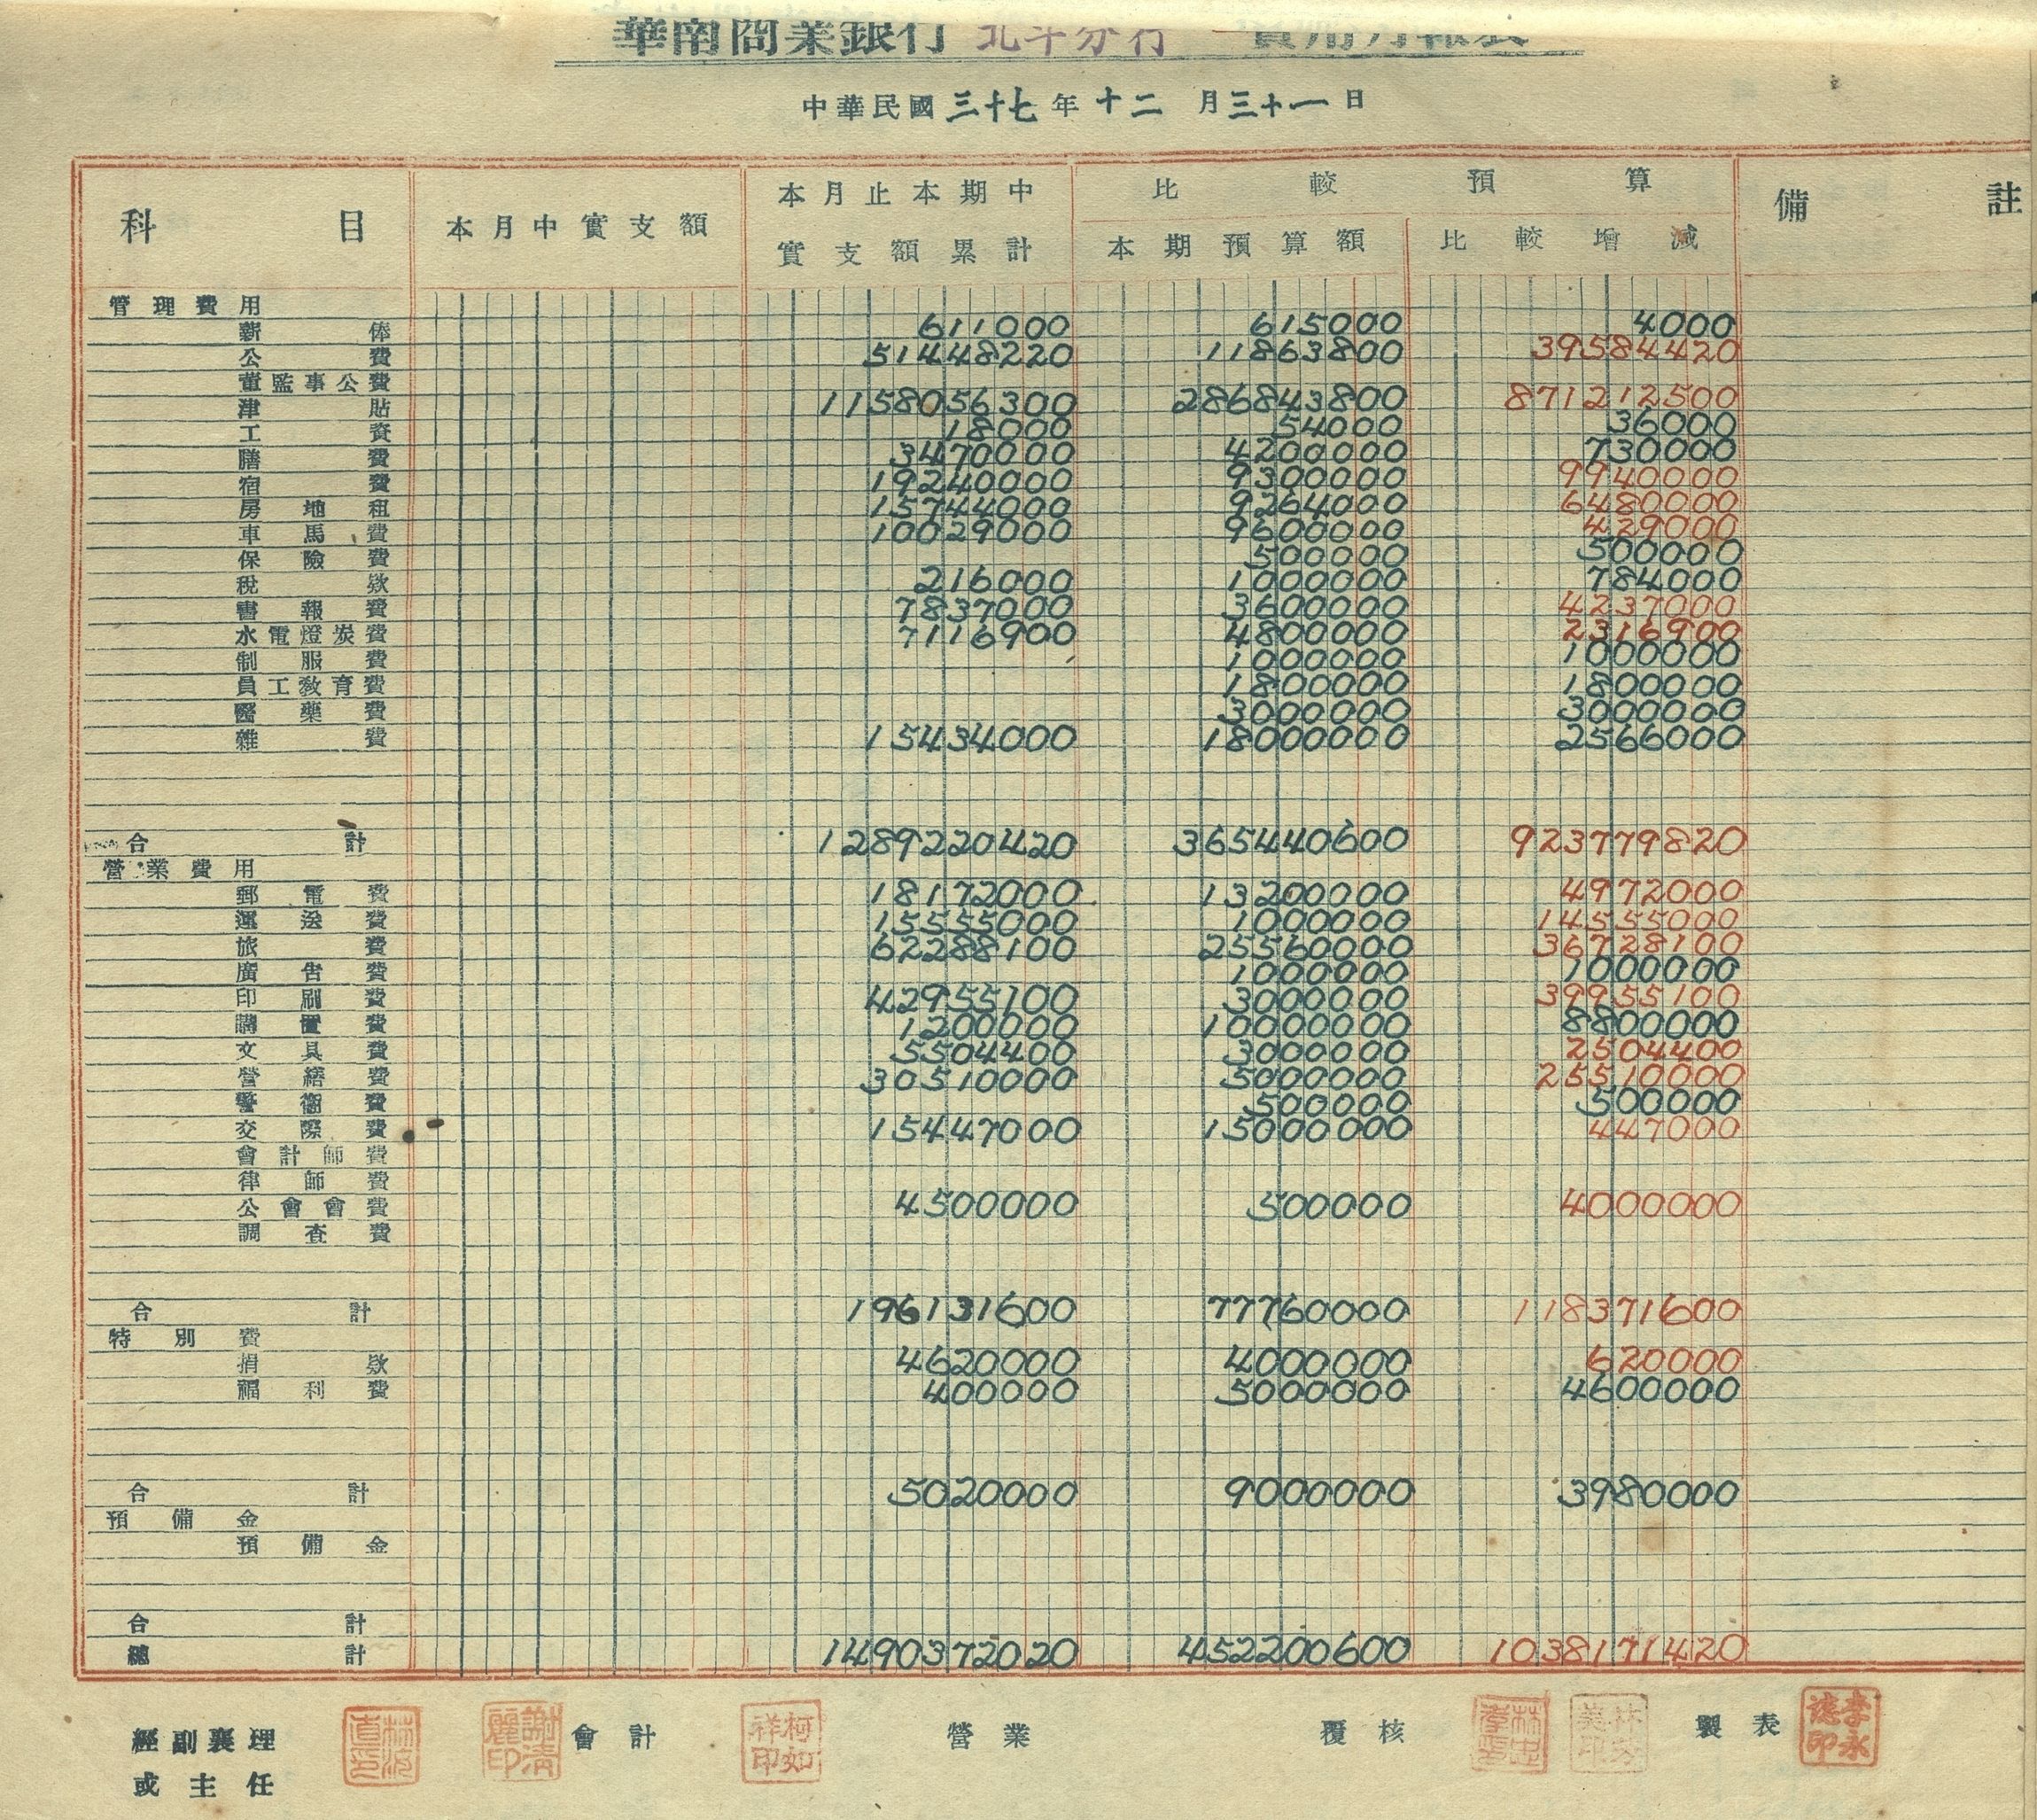 華南商業銀行 北斗分行 費用月報表
中華民國三十七年十二月三十一日
科目 本月中實支額 本月止本期中實支額累計 比較預算 本期預算額 比較增減 備註
管理費用
薪俸 611000 615000 4000
公費 51448220 11863800 39584420
董監事公費
津貼 1158056300 286843800 871212500
工資 18000 54000 36000
膳費 3470000 4200000 730000
宿費 19240000 9300000 9940000
房地租 15744000 9264000 6480000
車馬費 10029000 9600000 429000
保險費 500000 500000
稅欵 216000 1000000 784000
書報費 7837000 3600000 4237000
水電燈炭費 7116900 4800000 2316900
制服費 1000000 1000000
員工教育費 1800000 1800000
醫藥費 3000000 3000000
雜費 15434000 18000000 2566000
合計 1289220420 365440600 923779820
營業費用
郵電費 18172000 13200000 4972000
運送費 15555000 1000000 14555000
旅費 62288100 25560000 36728100
廣告費 1000000 1000000
印刷費 42955100 3000000 39955100
購置費 1200000 10000000 8800000
文具費 5504400 3000000 2504400
營繕費 30510000 5000000 25510000
警衛費 500000 500000
交際費 15447000 15000000 447000
會計師費
律師費
公會會費 4500000 500000 4000000
調查費
合計 196131600 77760000 118371600
特別費
捐欵 4620000 4000000 620000
福利費 400000 5000000 4600000
合計 5020000 9000000 3980000
預備金
預備金
合計
總計 1490372020 452200600 1038171420
經副襄理 會計 謝清麗印 營業 柯如祥印 覆核 製表 李永德印
或主任